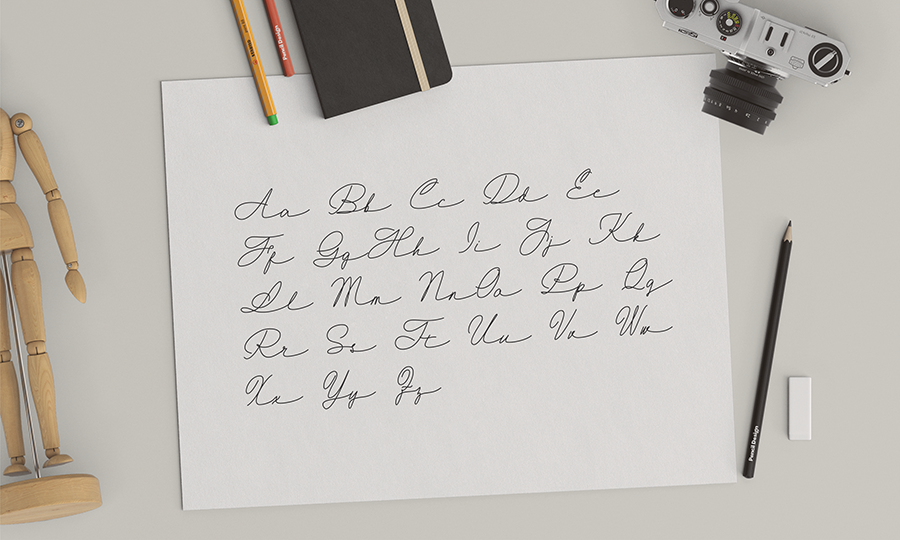 Aa Bb Cc Dd Ee
Ff Gg Hh Ii Jj Kk
Ll Mm Nn Oo Pp Qq
Rr Ss Tt Uu Vv Ww
Xx Yy Zz
Pencil Design
Pencil Design